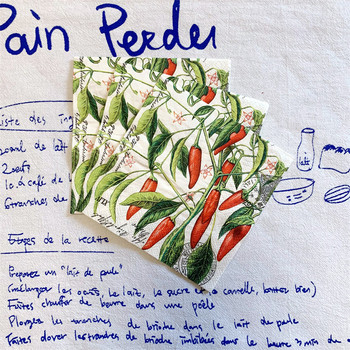 Pain Perdu
liste des ing
de lait
2 oeufs
1 c. à café de
tranches de
lait
Etapes de la recette
Préparez un "lait de poule"
(mélanger les oeufs, le lait, le sucre et la cannelle, battez bien)
Faites chauffer du beurre dans une poêle
Plongez les tranches de brioche dans le lait de poule
Faites dorer les tranches de brioche imbibées dans le beurre min du